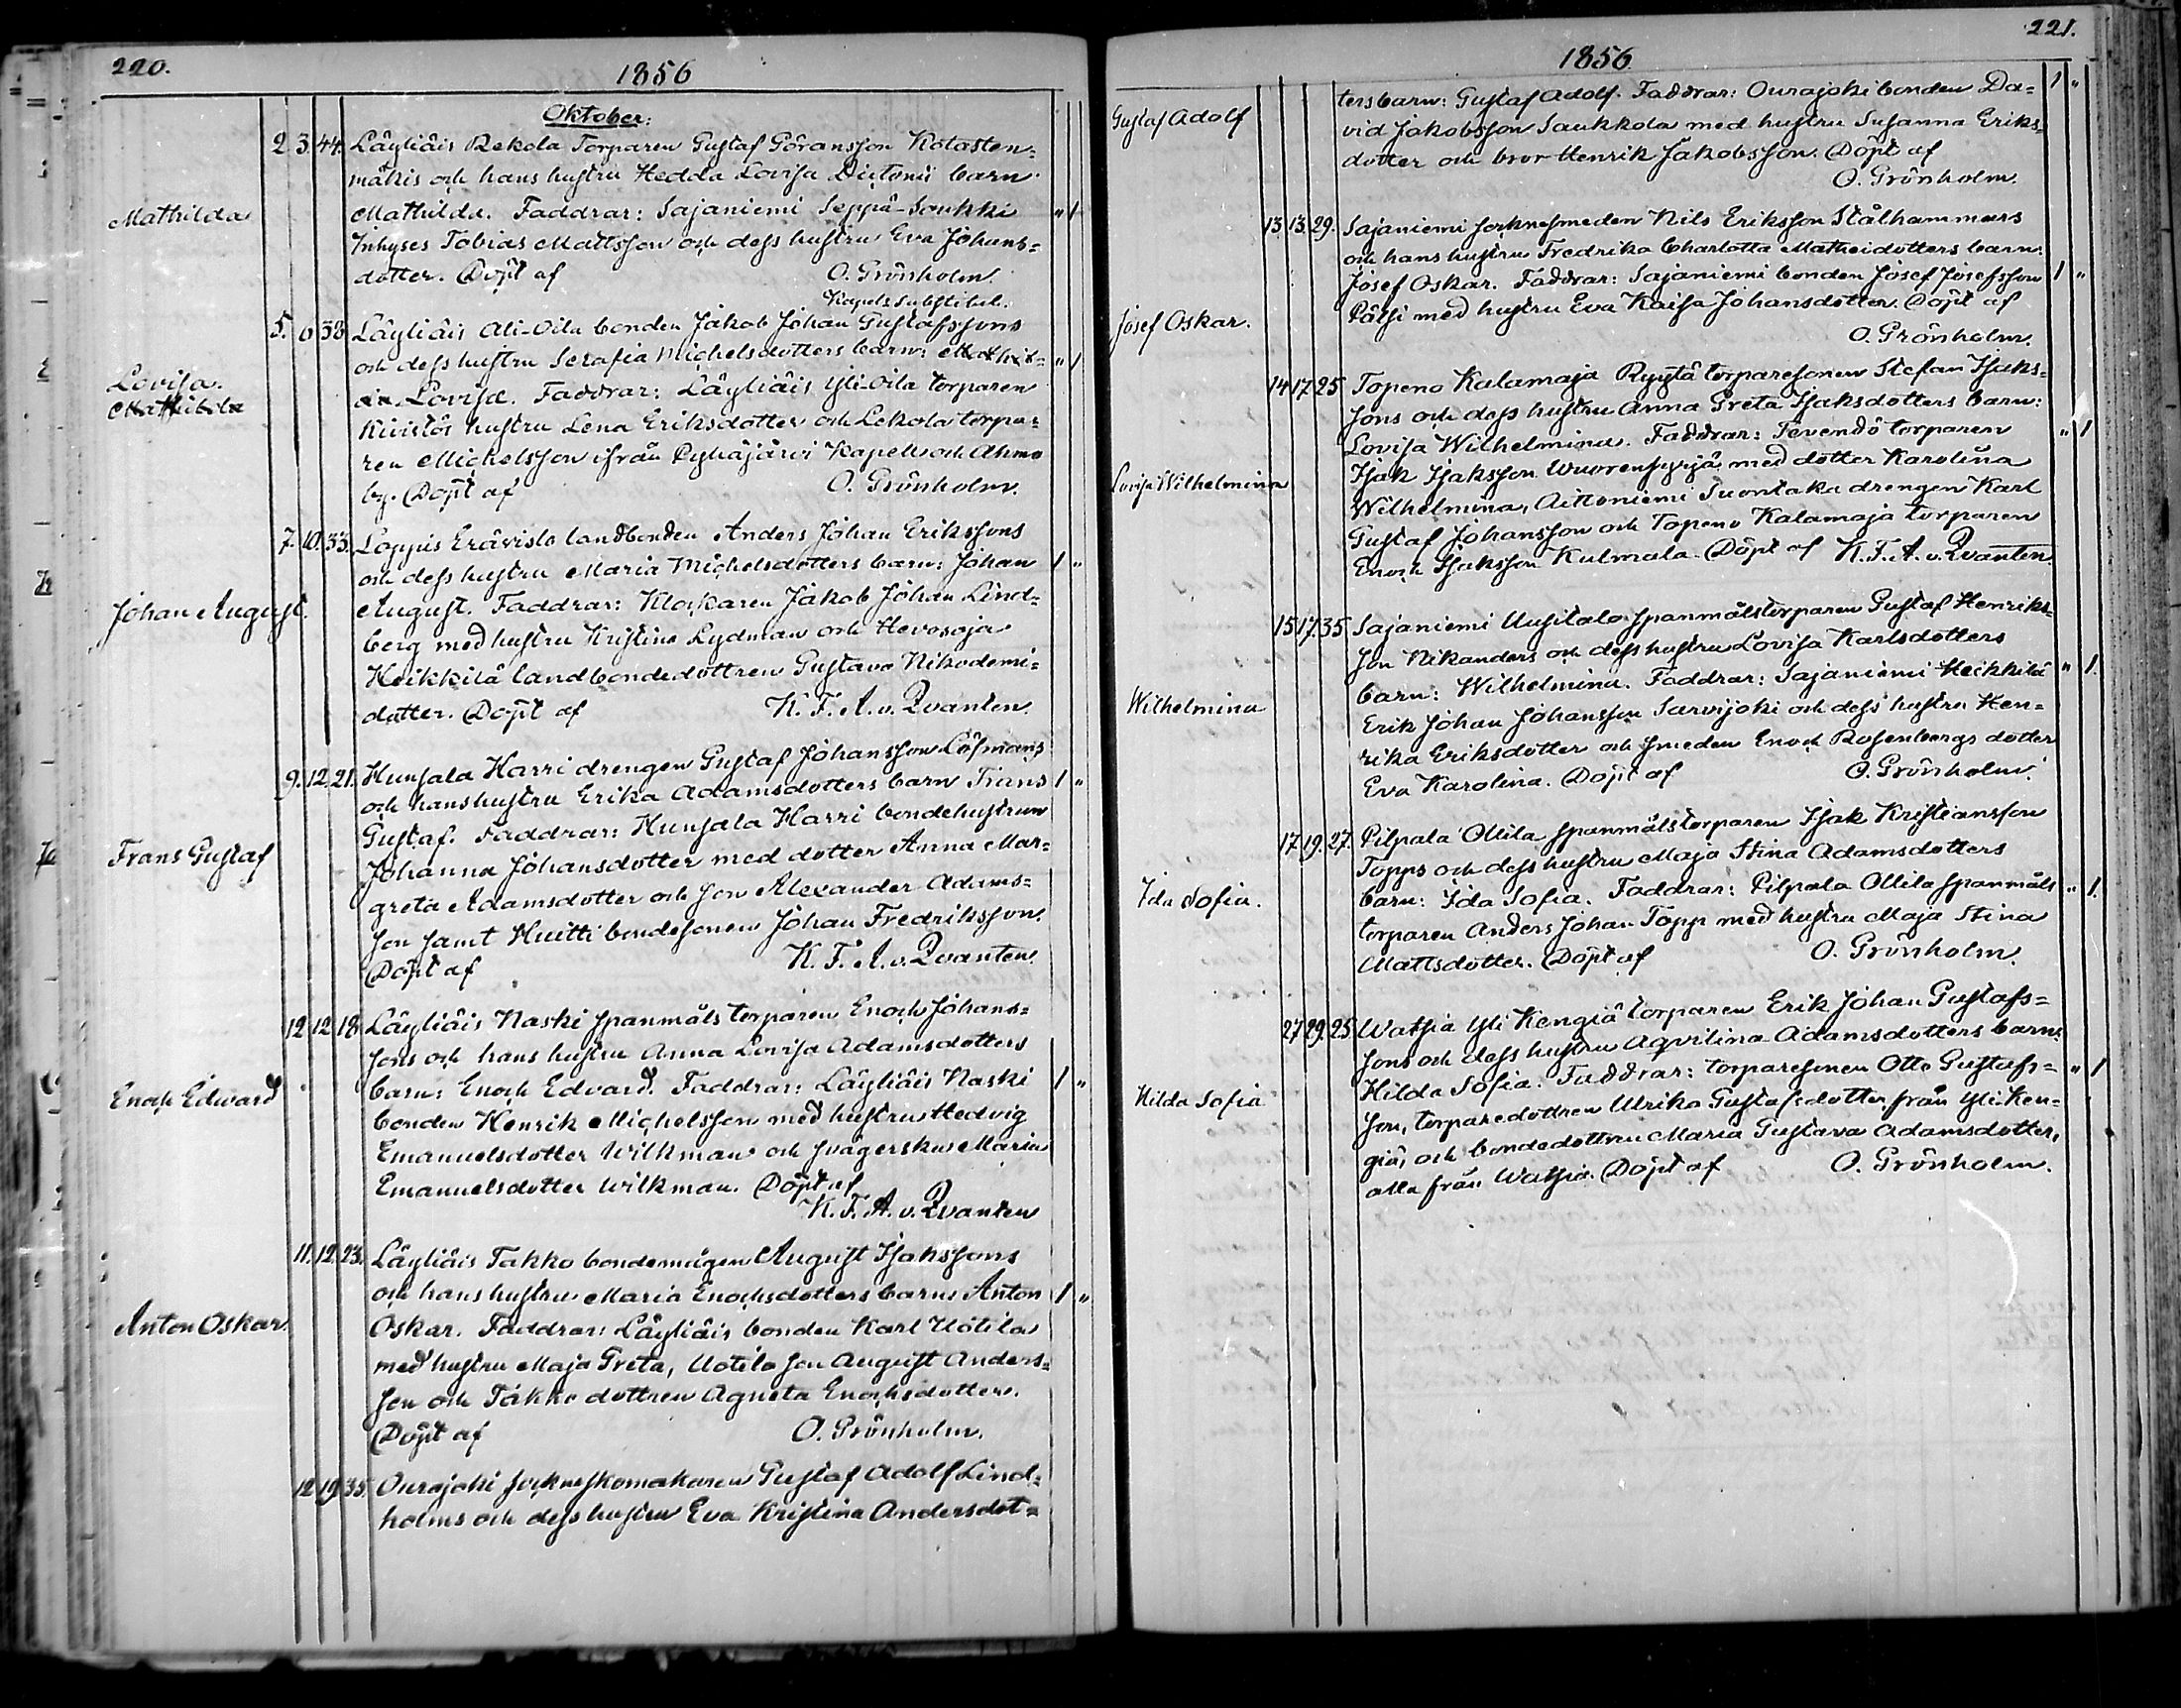 220.
1856
Oktober:
2 3 44. Läyliäis Rekola Torparen Gustaf Göransson Kotasten=
mäkis och hans hustru Hedda Lovisa Dictonii barn
Mathilda
Mathilda. Faddrar: Sajaniemi Seppä-Soukki " 1
Inhyses Tobias Mattsson och dess hustru Eva Johans=
dotter. Döpt af O. Grönholm.
Kapels substitut.
5. 6 38 Läyliäis Ali-Oila bonden Jakob Johan Gustafssons
och dess hustru Serafia Michelsdotters barn: Mathil= " 1
Lovisa.
Mathilda
da Lovisa. Faddrar: Läyliäis Yli-Oila torparen
Kivistös hustru Lena Eriksdotter och Lekola torpa=
ren Michelsson ifrån Pyhäjärvi Kapell och Ahmo
by. Döpt af O. Grönholm.
7. 10. 33. Loppis Erävisto landbonden Anders Johan Erikssons
och dess hustru Maria Michelsdotters barn: Johan 1 "
Johan August.
August. Faddrar: Klockaren Jakob Johan Lind=
berg med hustru Kristina Lydman och Hevosoja
Heikkilä landbondedottren Gustava Nikodemi=
dotter. Döpt af K. F. A. v. Qvanten.
9. 12. 21. Hunsala Harri drengen Gustaf Johansson Löfmans
och hans hustru Erika Adamsdotters barn Frans 1 "
Frans Gustaf
Gustaf. Faddrar: Hunsala Harri bondehustrun
Johanna Johansdotter med dotter Anna Mar=
greta Adamsdotter och son Alexander Adams=
son samt Huitti bondesonen Johan Fredriksson.
Döpt af K. F. A. v. Qvanten.
12 12 18 Läyliäis Naski spanmåls torparen Enoch Johans=
sons och hans hustru Anna Lovisa Adamsdotters
Enoch Edward
barn: Enoch Edvard. Faddrar: Läyliäis Naski 1 "
bonden Henrik Michelsson med hustru Hedvig
Emanuelsdotter Wilkman och svägerskan Maria
Emanuelsdotter Wilkman. Döpt af
K. F. A. v. Qvanten
11. 12. 23. Läyliäis Takko bondemågen August Isakssons
och hans hustru Maria Enochsdotters barn Anton 1 "
Anton Oskar.
Oskar. Faddrar: Läyliäis bonden Karl Uotila
med hustru Maja Greta, Uotila son August Anders=
son och Takko dottren Agneta Enochsdotter.
Döpt af O. Grönholm.
12 19 35. Ourajoki sockneskomakaren Gustaf Adolf Lind=
holms och dess hustru Eva Kristina Andersdot=
221.
1856
tersbarn: Gustaf Adolf. Faddrar: Ourajoki bonden Da= 1 "
Gustaf Adolf
vid Jakobsson Saukkola med hustru Susanna Eriks=
dotter och bror Henrik Jakobsson. Döpt af
O. Grönholm.
13. 13. 29. Sajaniemi socknesmeden Nils Eriksson Stålhammars
och hans hustru Fredrika Charlotta Matheidotters barn:
Josef Oskar. Faddrar: Sajaniemi bonden Josef Josefsson 1 "
Josef Oskar.
Pätsi med hustru Eva Kaisa Johansdotter. Döpt af
O. Grönholm.
14 17 25 Topeno Kalamaja Ryytä torparesonen Stefan Isaks=
sons och dess hustru Anna Greta Isaksdotters barn:
Lovisa Wilhelmina. Faddrar: Tevendö torparen " 1
Lovisa Wilhelmina
Isak Isaksson Wuorensyrjä med dotter Karolina
Wilhelmina, Aittoniemi Suontaka drengen Karl
Gustaf Johansson och Topeno Kalamaja torparen
Enoch Isaksson Kulmala. Döpt af K. F. A. v. Qvanten.
15 17. 35 Sajaniemi Uusitalo spanmålstorparen Gustaf Henriks=
son Nikanders och dess hustru Lovisa Karlsdotters
Wilhelmina
barn: Wilhelmina. Faddrar: Sajaniemi Heikkilä " 1.
Erik Johan Johansson Sarvijoki och dess hustru Hen=
rika Eriksdotter och smeden Enoch Rosenbergs dotter
Eva Karolina. Döpt af O. Grönholm.
17. 19. 27. Pilpala Ollila spanmålstorparen Isak Kristiansson
Topps och dess hustru Maja Stina Adamsdotters
Ida Sofia.
barn: Ida Sofia. Faddrar: Pilpala Ollila spanmåls " 1.
torparen Anders Johan Topp med hustru Maja Stina
Mattsdotter. Döpt af O. Grönholm.
27 29. 25 Watsia Yli Kengiä torparen Erik Johan Gustafs=
sons och dess hustru Aqvilina Adamsdotters barn:
Hilda Sofia
Hilda Sofia. Faddrar: torparesonen Otto Gustafs= " 1
son, torparedottren Ulrika Gustafsdotter från Yli-Ken=
giä, och bondedottren Maria Gustava Adamsdotter,
alla från Watsia. Döpt af O. Grönholm.